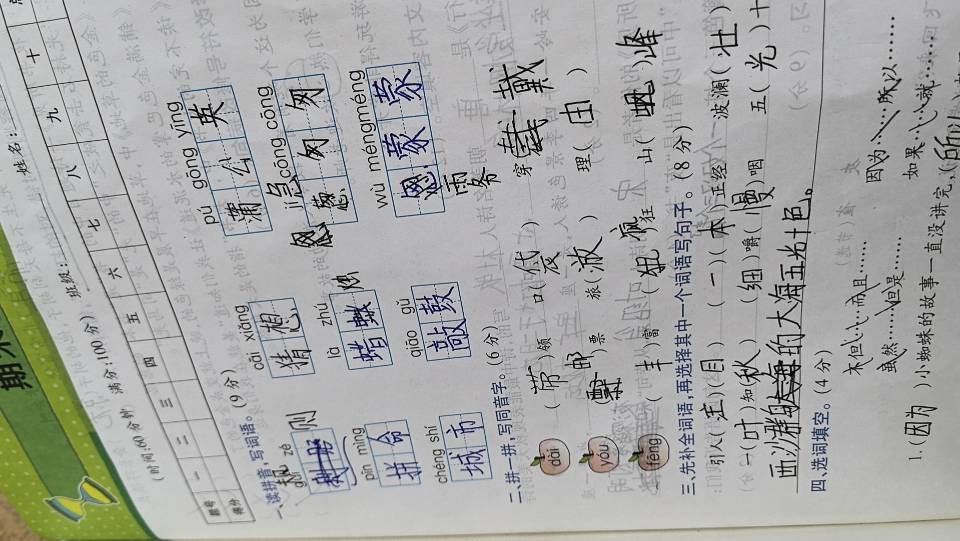 期末
姓名：
班级：
(时间:60分钟 满分:100分)
题号 一 二 三 四 五 六 七 八 九 十
得分
一、读拼音,写词语。(9分)
guī zé cāi xiǎng pú gōng yīng
规则 猜想 蒲公英
pīn mìng là zhú jí cōng cōng
拼命 蜡 烛 急匆匆
chéng shì qiāo gǔ wù méngméng
城市 敲鼓 雾蒙蒙
二、拼一拼,写同音字。(6分)
dài (带)领 口(袋) 穿(戴)
yóu (邮)票 旅(游) 理(由)
fēng (丰)富 (疯)狂 山(峰)
三、先补全词语,再选择其中一个词语写句子。(8分)
引人(注)(目) (一)(本)正经 波澜(壮)
一(叶)知(秋) (细)嚼(慢)咽 五(光)十
西沙群岛的大海五光十色。
四、选词填空。(4分)
不但……而且…… 因为……所以……
虽然……但是…… 如果……就……
1.(因为)小蜘蛛的故事一直没讲完,(所以